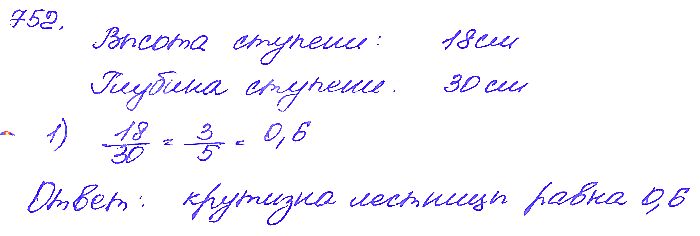 752.
Высота ступени: 18 см
Глубина ступени. 30 см
1) 18/30 = 3/5 = 0,6
Ответ: крутизна лестницы равна 0,6